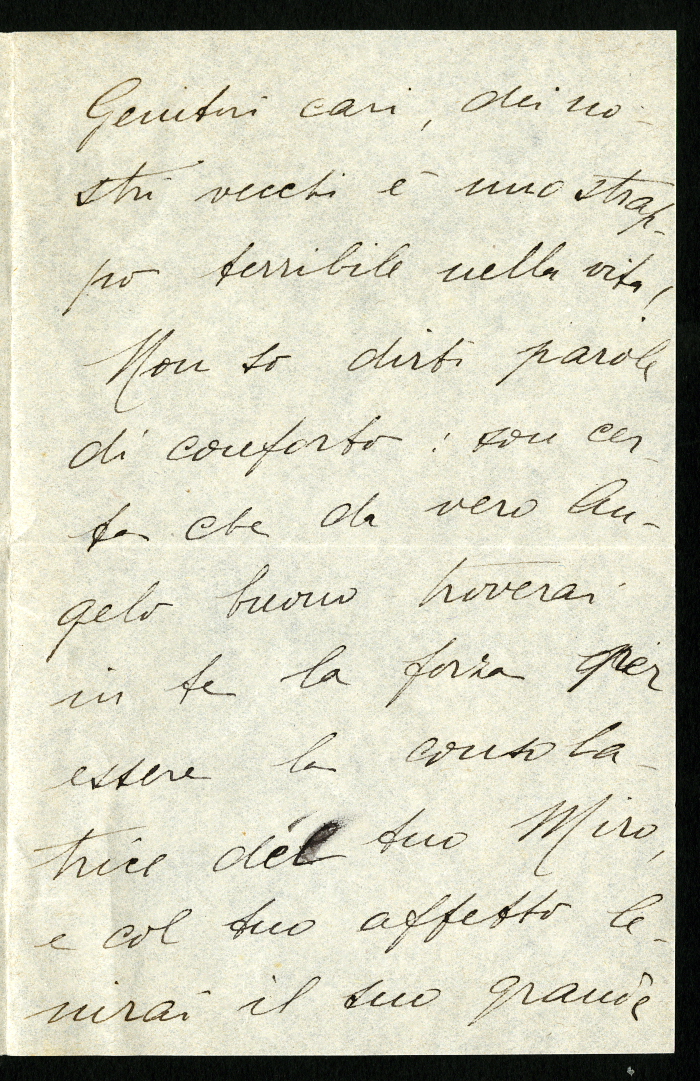 Genitori cari, dei no-
stri vecchi è uno strap-
po terribile nella vita!
Non so dirti parole
di conforto: son cer-
ta che da vero An-
gelo buono troverai
in te la forza per
essere la consola-
trice del tuo Miro,
e col tuo affetto le-
nirai il suo grande